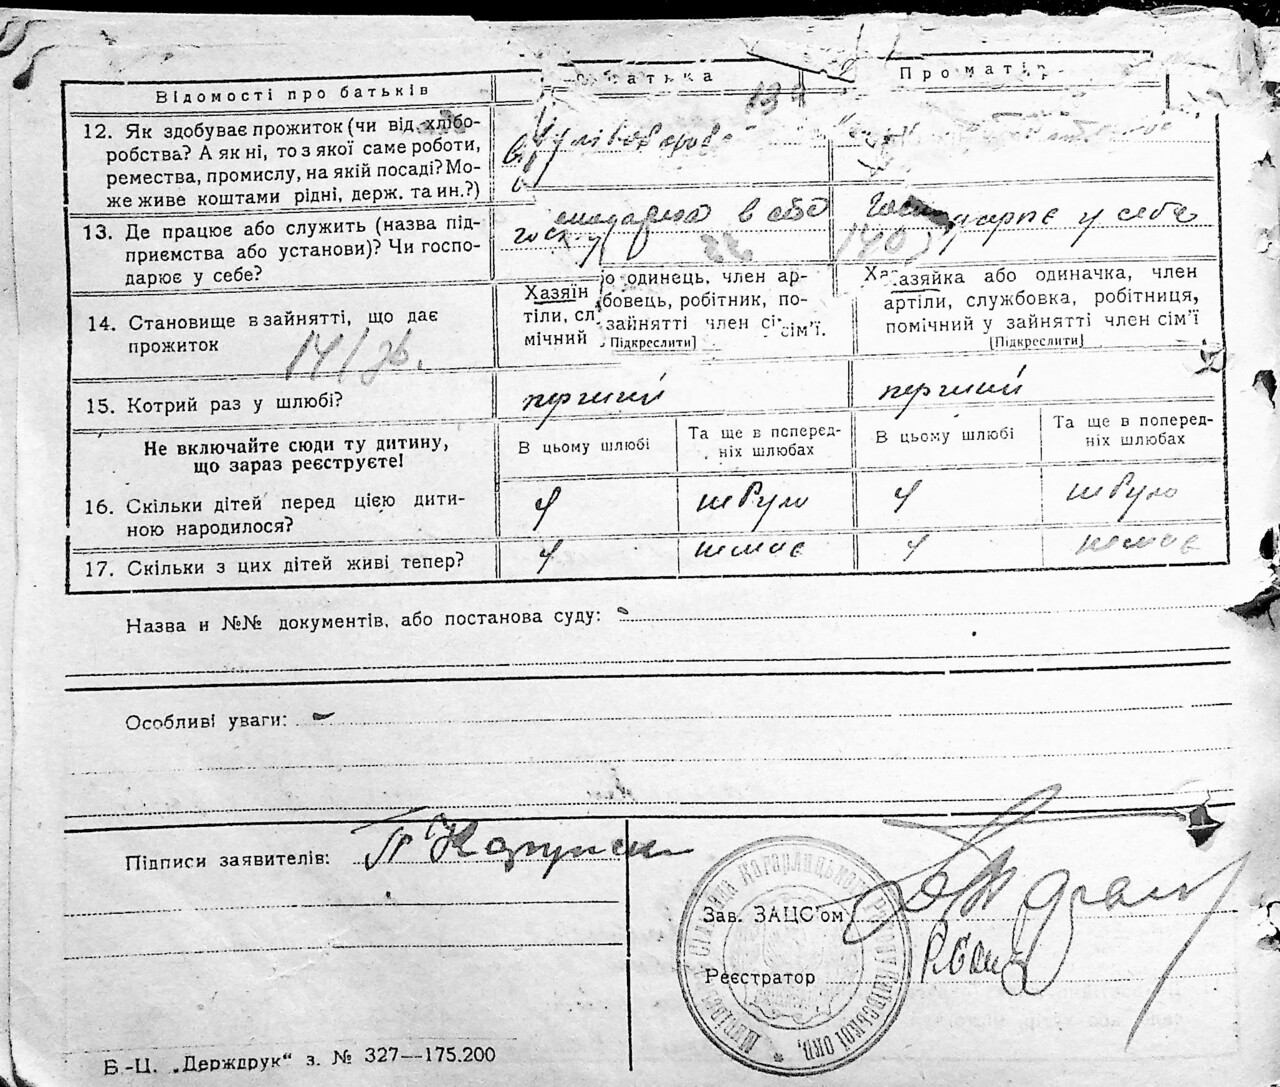 Відомості про батьків
Про матір
12. Як здобуває прожиток (чи від хлібо-
робства? А як ні, то з якої саме роботи,
ремества, промислу, на якій посаді? Мо-
же живе коштами рідні, держ. та ин.?)
13. Де працює або служить (назва під-
приємства або установи)? Чи госпо-
дарює у себе?
в себе
у себе
14. Становище в зайнятті, що дає
прожиток
14/26.
Хазяїн одинець, член ар-
тіли, службовець, робітник, по-
мічний зайнятті член сім'ї.
[Підкреслити]
Хазяйка або одиначка, член
артіли, службовка, робітниця,
помічний у зайнятті член сім'ї
[Підкреслити]
15. Котрий раз у шлюбі?
перший
перший
Не включайте сюди ту дитину,
що зараз реєструєте!
В цьому шлюбі
Та ще в поперед-
ніх шлюбах
В цьому шлюбі
Та ще в поперед-
ніх шлюбах
16. Скільки дітей перед цією дити-
ною народилося?
4
не було
4
не було
17. Скільки з цих дітей живі тепер?
4
немає
4
немає
Назва и №№ документів, або постанова суду: -
Особливі уваги: -
Підписи заявителів:
Зав. ЗАЦС'ом
Реєстратор
Б.-Ц. „Держдрук“ з. № 327—175.200